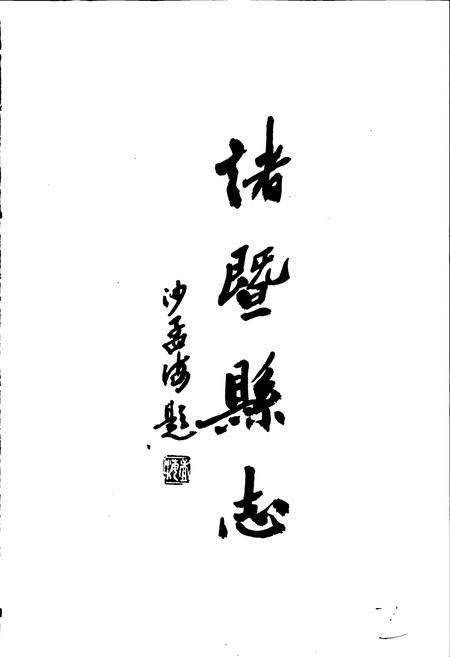 諸暨縣志
沙孟海題